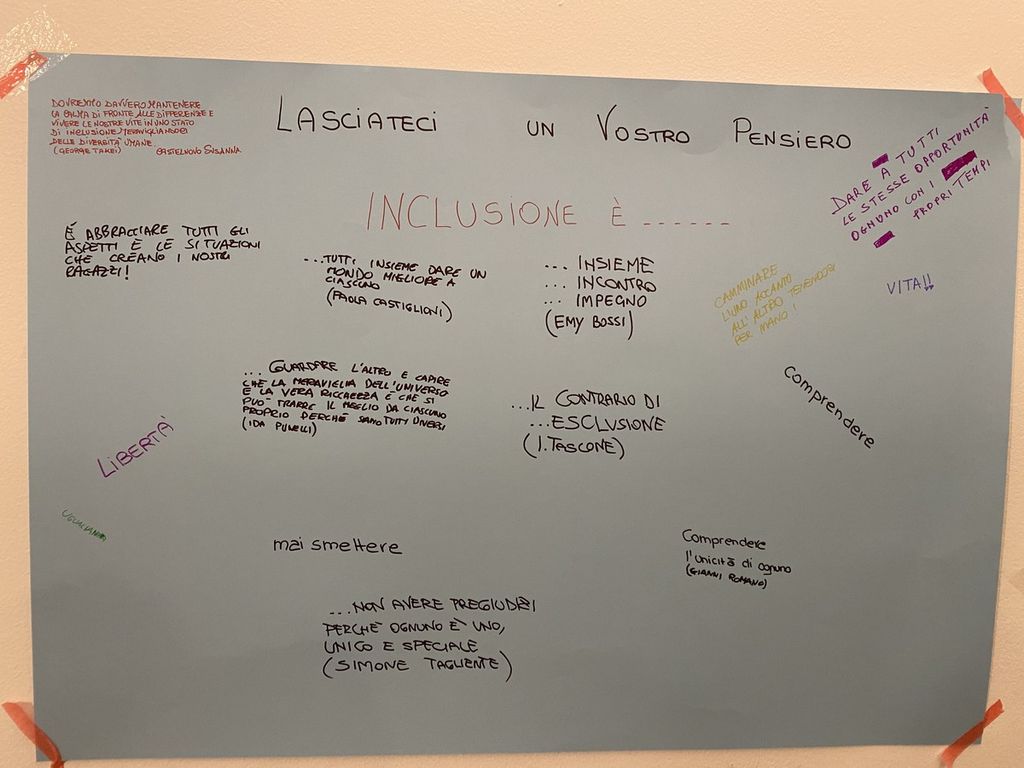 LASCIATECI UN VOSTRO PENSIERO
DOVREMMO DAVVERO MANTENERE
LA CALMA DI FRONTE ALLE DIFFERENZE E
VIVERE LE NOSTRE VITE IN UNO STATO
DI INCLUSIONE,
DELLE DIVERSITÀ UMANE.
(GEORGE TAKEI) CASTELNOVO SUSANNA
DARE A TUTTI
LE STESSE OPPORTUNITÀ
OGNUNO CON I
PROPRI TEMPI
INCLUSIONE È ......
È ABBRACCIARE TUTTI GLI
ASPETTI E LE SITUAZIONI
CHE CREANO I NOSTRI
RAGAZZI!
...TUTTI INSIEME DARE UN
MONDO MIGLIORE A
CIASCUNO
(PAOLA CASTIGLIONI)
... INSIEME
... INCONTRO
... IMPEGNO
(EMY BOSSI)
CAMMINARE
L'UNO ACCANTO
ALL'ALTRO TENENDOSI
PER MANO!
VITA!!
... GUARDARE L'ALTRO E CAPIRE
CHE LA MERAVIGLIA DELL'UNIVERSO
E LA VERA RICCHEZZA È CHE SI
PUO' TRARRE IL MEGLIO DA CIASCUNO
PROPRIO PERCHÉ SIAMO TUTTI DIVERSI
(IDA PUNELLI)
...IL CONTRARIO DI
...ESCLUSIONE
(I.TASCONE)
Comprendere
LIBERTÀ
mai smettere
Comprendere
l'unicità di ognuno
(GIANNI ROMANO)
...NON AVERE PREGIUDIZI
PERCHÉ OGNUNO È UNO,
UNICO E SPECIALE
(SIMONE TAGLIENTE)